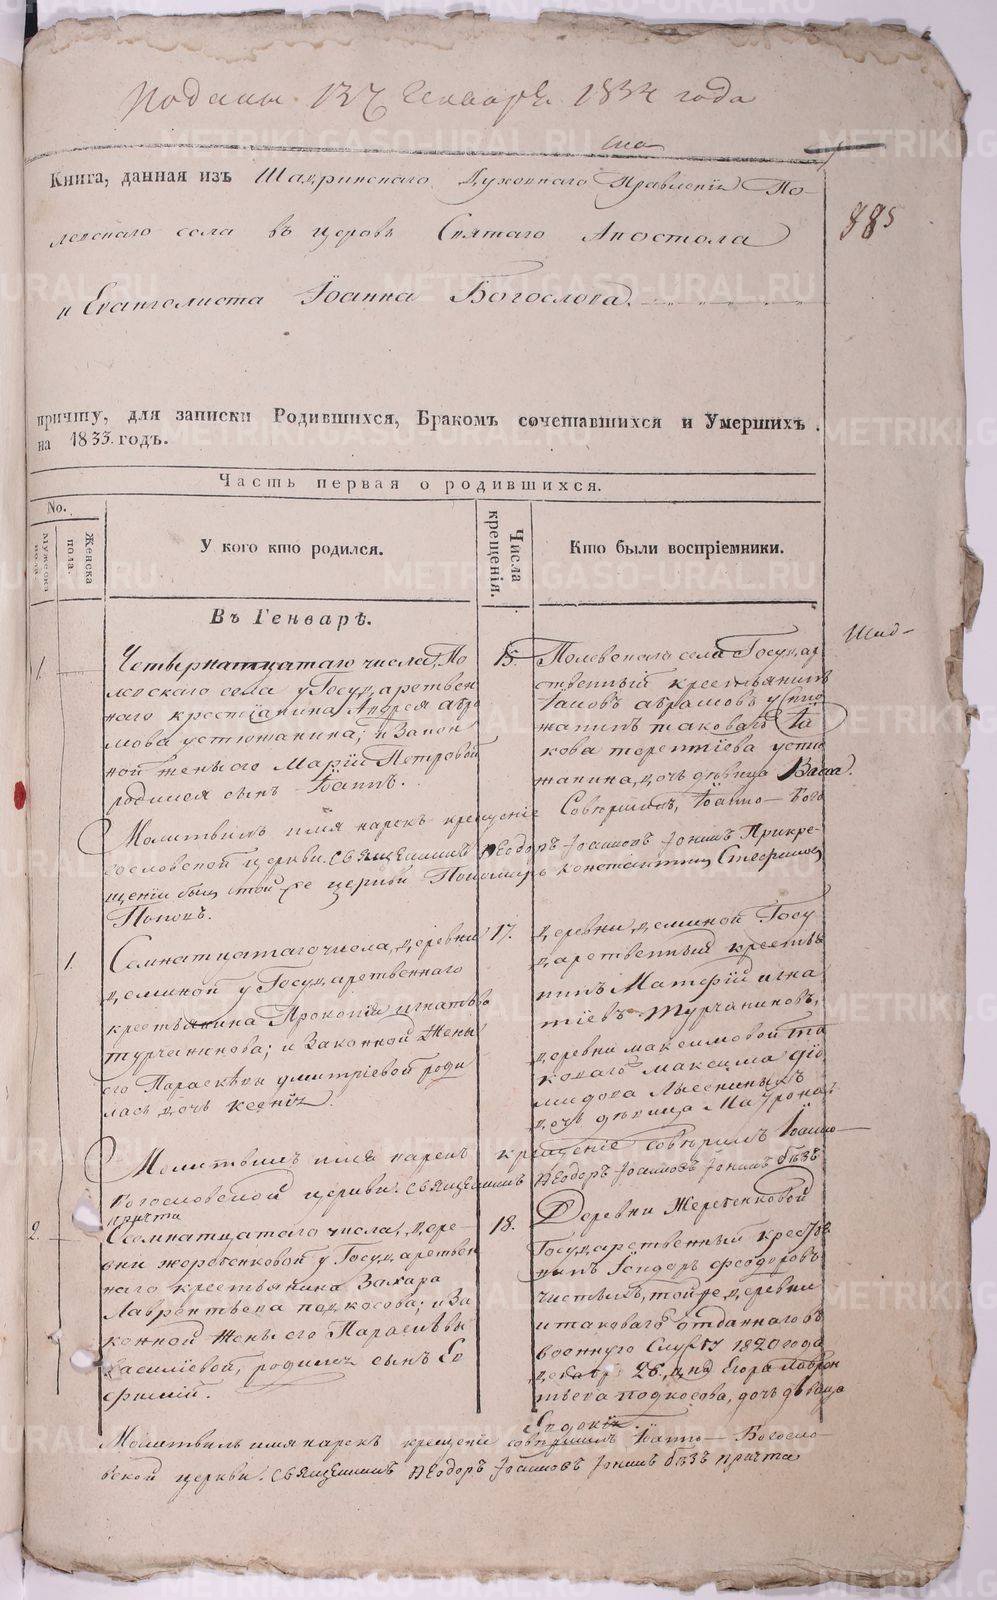 Поданы 13 Генваря 1834 года
Книга, данная изъ Шадринскаго Духовнаго Правленія По-
левскаго села въ церовь Святаго Апостола
и Евангелиста Іоанна Богослова.
885
причту, для записки Родившихся, Бракомъ сочетавшихся и Умершихъ
на 1833 годъ.
Часть первая о родившихся.
No.
Мужеска пола.
Женска пола.
У кого кто родился.
Числа крещенія.
Кто были воспріемники.
Въ Генварѣ.
1.
Четвернатцатаго числа, По
левскаго села у Государствен
наго крестьянина Андрея абра
мова устюжанина; и Закон
ной жены его Маріи Петровой
родился сынъ Іоаннъ.
15.
Полевскаго села Государ
ственный крестьянинъ
Іаковъ абрамовъ устю
жанинъ таковагъ Іа
кова терентіева устю
жанина, дочь дѣвица Васса.
Молитвилъ имя нарекъ крещеніе Совершилъ, Іоанно-Бого
словской церкви Священникъ Ѳеодоръ Іоанновъ Прикре-
щеніи былъ той же церкви Пономарь константинъ Стефановъ
Поповъ.
1.
Семнатцатаго числа, деревни
деминой у Государственнаго
крестьянина Прокопія игнатова
турчанинова; и Законной Жены
его Параскевы димитріевой роди
лась дочь ксенія.
17.
деревни деминой Госу
дарственный крестья
нинъ Матфій игна
тіевъ Турчаниновъ,
деревни максимовой та
коваго максима діо
мидова Лысеиныхъ
дочь дѣвица Матрона
Молитвилъ имя нарекъ крещеніе совершилъ Іоанно-
Богословской церкви Священникъ Ѳеодоръ Іоанновъ безъ
причта
2.
Семнатцатаго числа, дере-
вни жеребенковой у Государствен
наго крестьянина Захара
Лаврентьева подкосова; и За
конной Жены его Параскевы
василіевой, родился сынъ Ев
фимій.
18.
Деревни Жеребенковой
Государственный крестья
нинъ Ісидоръ феодоровъ
чистыхъ, той же деревни
и таковагъ отданнаго въ
военную Службу 1820 года
декабр: 26 дня Егора Лаврен
тьева подкосова, дочь дѣвица
Молитвилъ имя нарекъ крещеніе совершилъ Іоанно-Богосло
вской церкви Священникъ Ѳеодоръ Іоанновъ безъ причта
METRIKI.GASO-URAL.RU